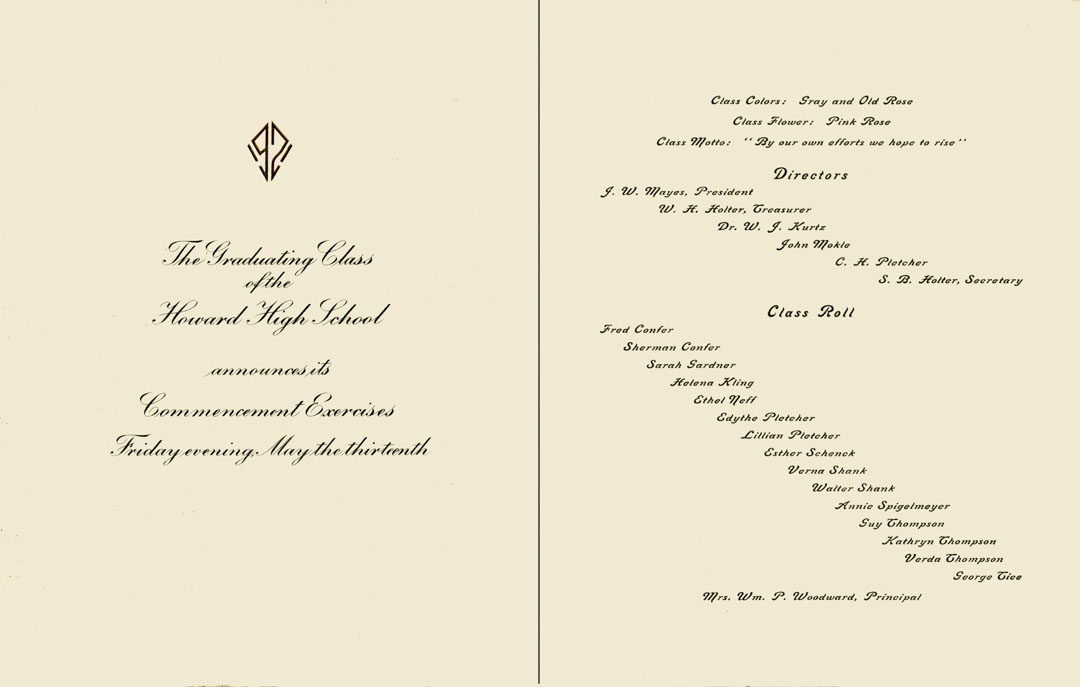 The Graduating Class
of the
Howard High School
announces its
Commencement Exercises
Friday evening, May the thirteenth
Class Colors: Gray and Old Rose
Class Flower: Pink Rose
Class Motto: "By our own efforts we hope to rise"
Directors
J. W. Mayes, President
W. H. Holter, Treasurer
Dr. W. J. Kurtz
John Mokle
C. H. Pletcher
S. B. Holter, Secretary
Class Roll
Fred Confer
Sherman Confer
Sarah Gardner
Helena Kling
Ethel Neff
Edythe Pletcher
Lillian Pletcher
Esther Schenck
Verna Shank
Walter Shank
Annie Spigelmeyer
Guy Thompson
Kathryn Thompson
Verda Thompson
George Tice
Mrs. Wm. P. Woodward, Principal